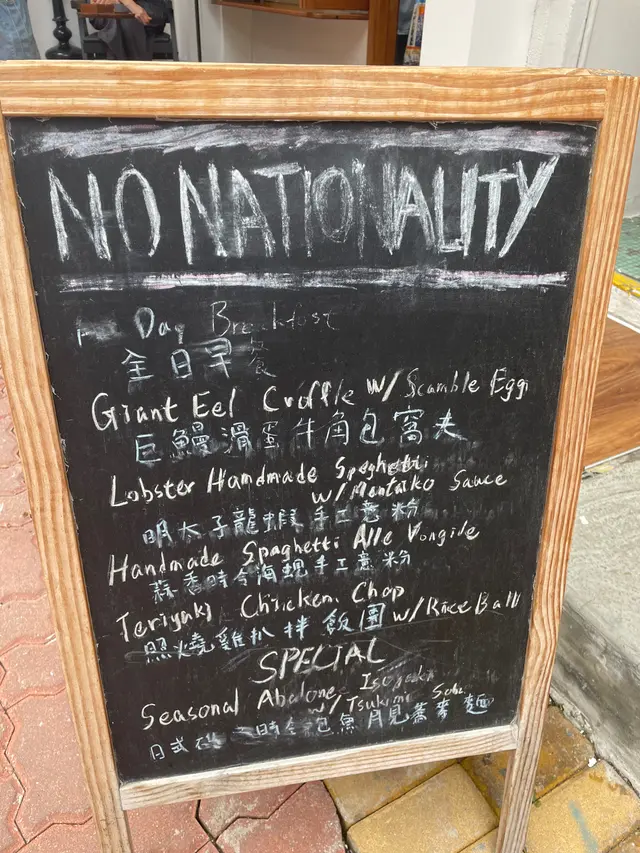 NO NATIONALITY
Day Breakfast
全日早餐
Giant Eel Croffle W/ Scamble Egg
巨鰻滑蛋牛角包窩夫
Lobster Handmade Speghetti
w/ Mentaiko Sauce
明太子龍蝦手工意粉
Handmade Spaghetti Alle Vongile
蒜香時令海蜆手工意粉
Teriyaki Chicken Chop
w/ Rice Ball
照燒雞扒拌飯團
SPECIAL
Seasonal Abalone Isoyaki
w/ Tsukimi Soba
日式 時令鮑魚月見蕎麥麵